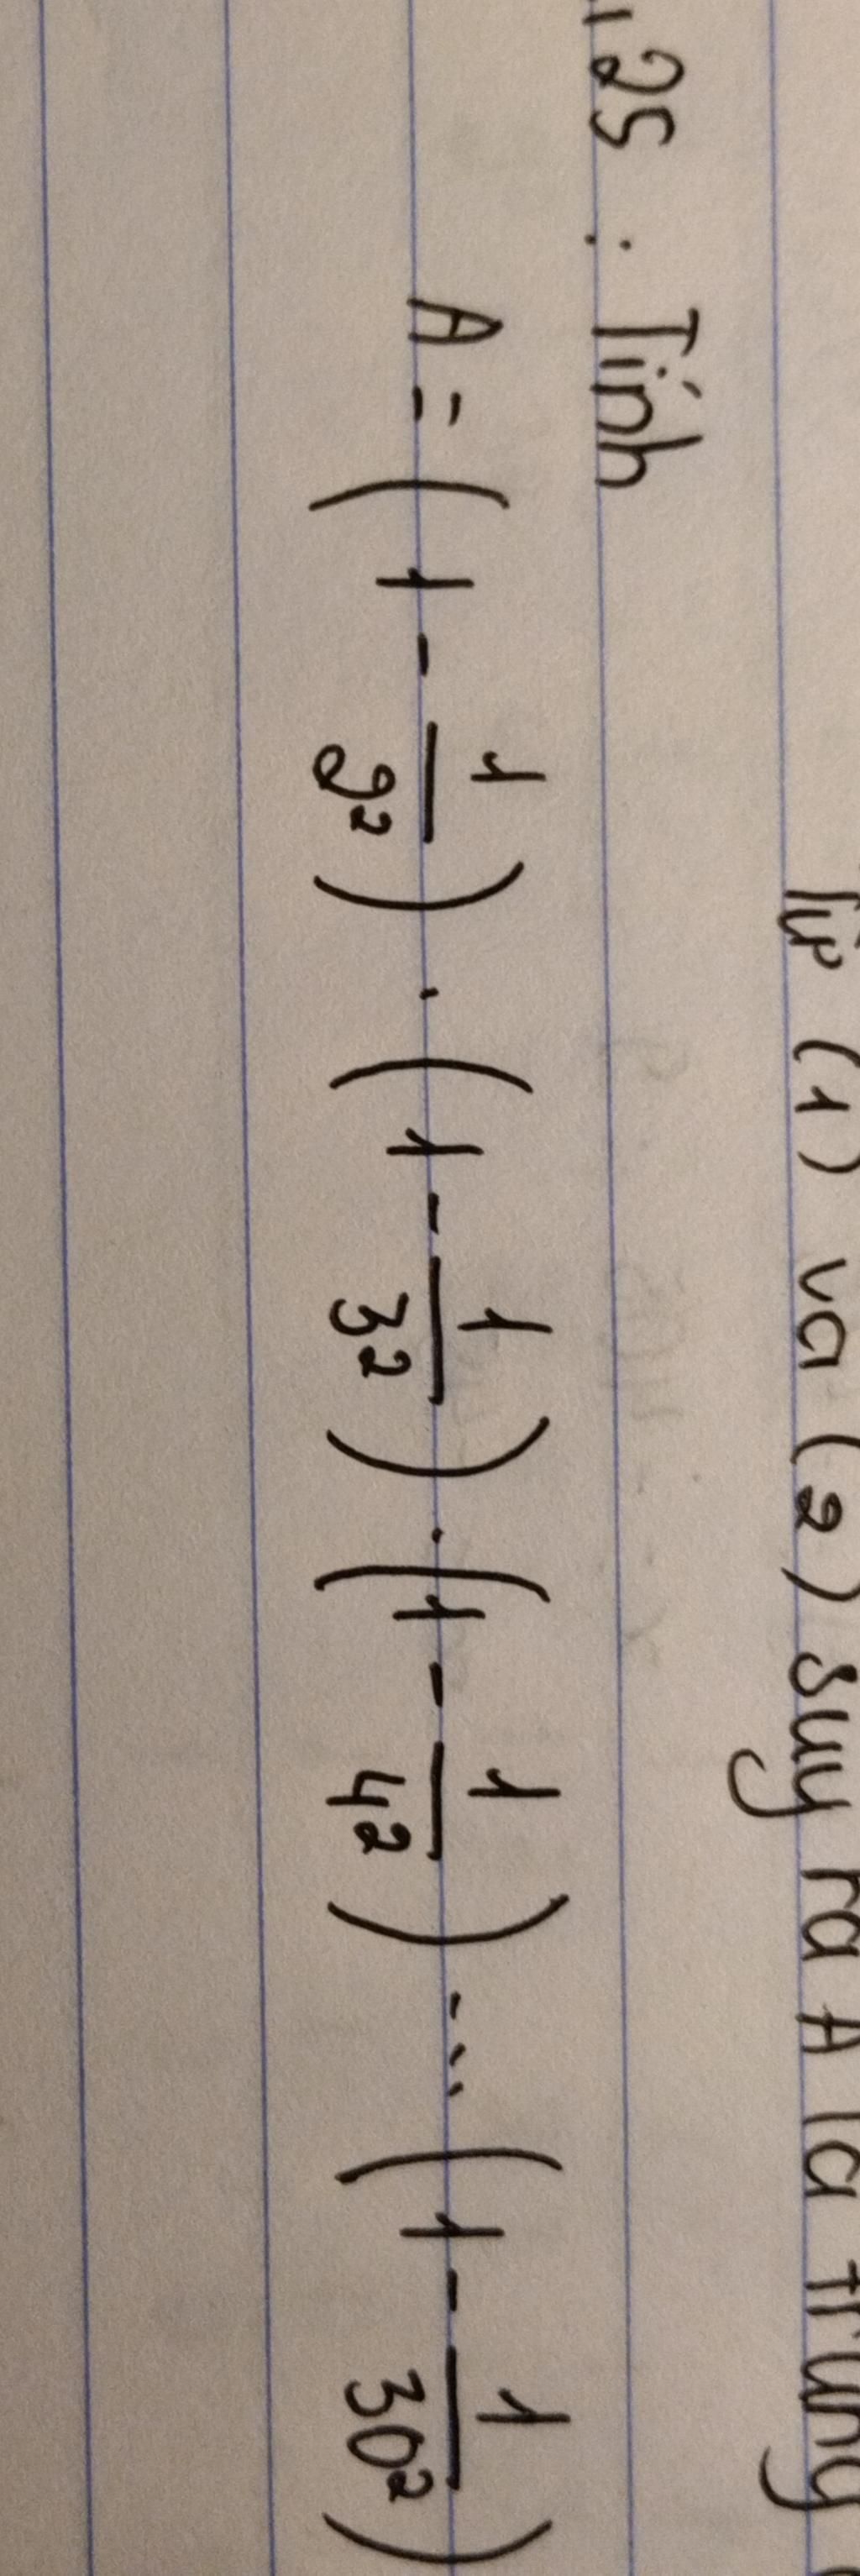 Từ (1) và (2) suy ra A là trung
25 : Tính
A = ( 1 - 1/2² ) . ( 1 - 1/3² ) . ( 1 - 1/4² ) ... ( 1 - 1/30² )